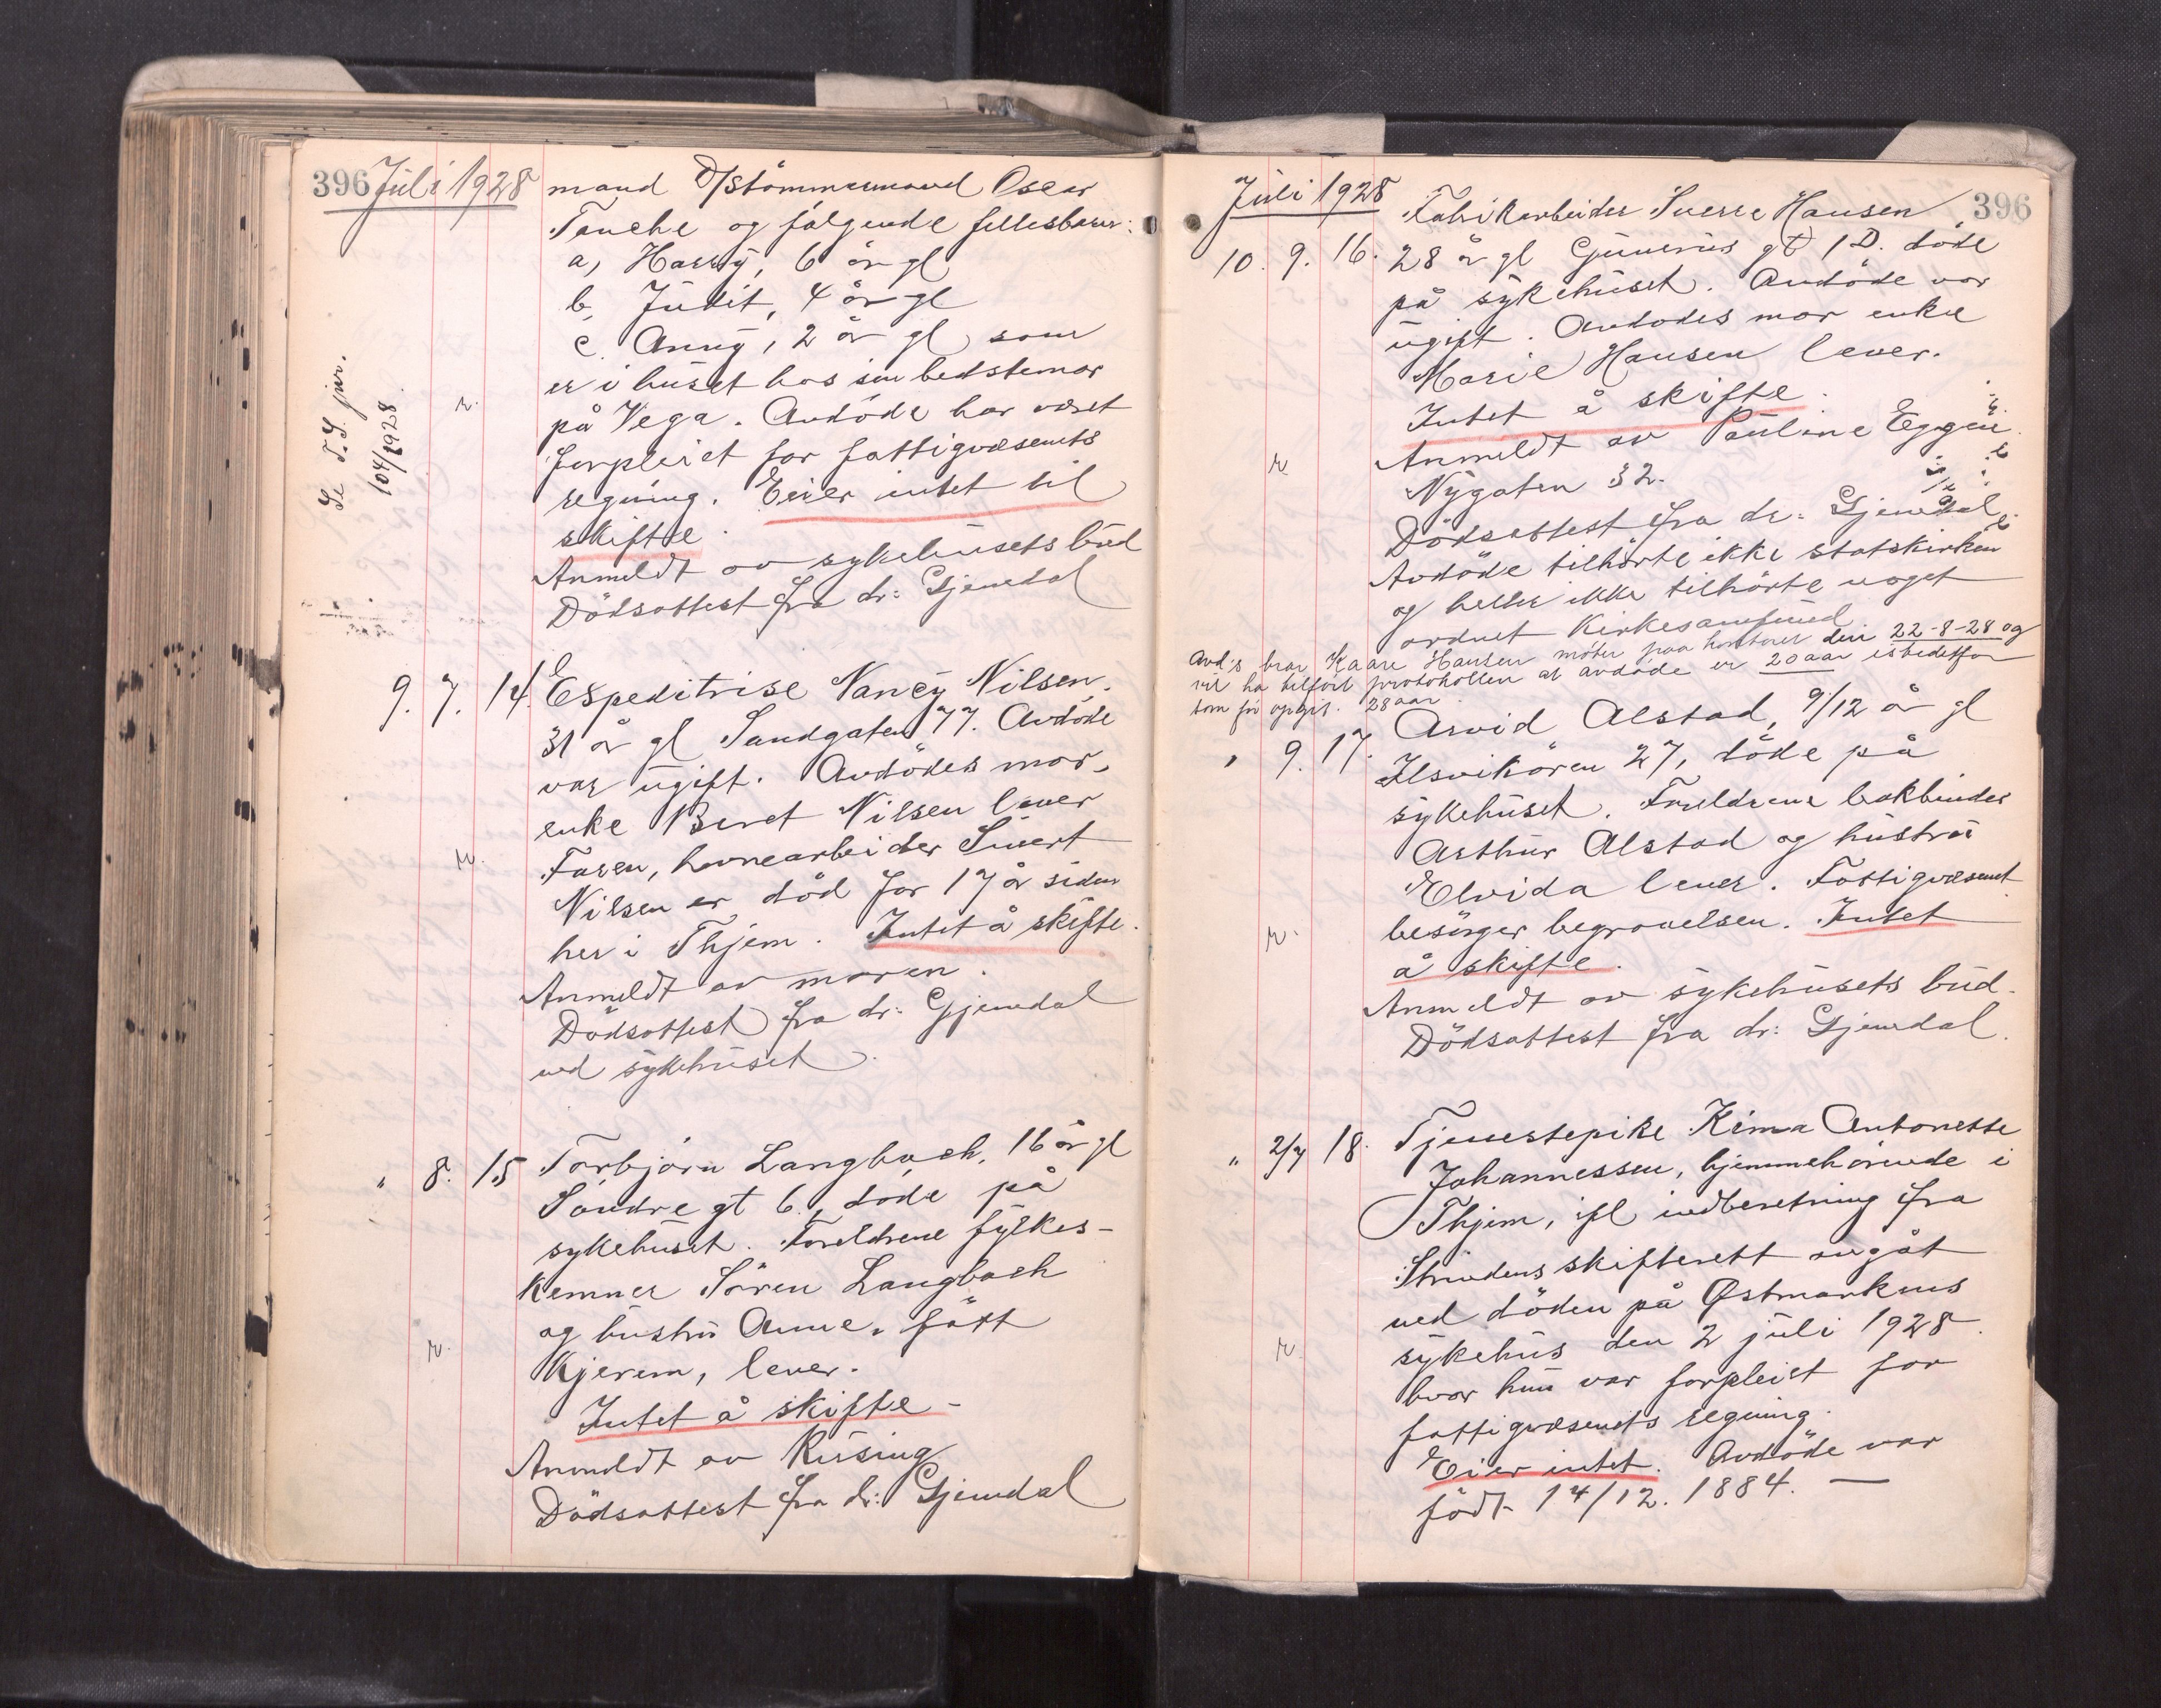 396 Juli 1928 mand D/Stömmermand Oscar
Tanche og følgende fellesbarn:
a, Harry, 6 år gl
b, Judit, 4 år gl
c. Anny, 2 år gl, som
er i huset hos sin bedstemor
på Vega. Avdöde har været
forpleiet for fattigvæsenets
regning. Eier intet til
skifte.
Anmeldt av sykehusets bud
Dödsattest fra dr: Gjemdal
Se T.S. jnr.
104/1928.
r.
9. 7. 14. Expeditrise Nancy Nilsen.
31 år gl Sandgaten 77. Avdöde
var ugift. Avdödes mor,
enke Beret Nilsen lever
Faren, havnearbeider Sivert
Nilsen er död for 17 år siden
her i Thjem. Intet å skifte.
Anmeldt av moren.
Dödsattest fra dr: Gjemdal
ved sykehuset.
r.
" 8. 15 Torbjörn Langbach, 16 år gl
Söndre gt 6., döde på
sykehuset. Foreldrene fylkes-
kemner Sören Langbach
og hustru Anne, fött
Kjerem, lever.
Intet å skifte -
Anmeldt av Rising
Dödsattest fra dr: Gjemdal
r.
Juli 1928 396
Fabrikarbeider Sverre Hansen,
10. 9. 16. 28 år gl Gunerius gt 1 D. döde
på sykehuset. Avdöde var
ugift. Avdödes mor enke
Marie Hansen lever.
Intet å skifte.
Anmeldt av Pauline Eggen
Nygaten 32.
Dödsattest fra dr: Gjemdal.
Avdöde tilhörte ikke statskirken
og heller ikke tilhörte noget
ordnet kirkesamfund
r
Avd's bror Kaare Hansen möter paa kontoret den 22-8-28 og
vil ha tilfört protokollen at avdöde er 20 aar istedetfor
som før opgit. 28 aar.
" 9. 17. Arvid Alstad, 9/12 år gl
Ilsvikören 27, döde på
sykehuset. Foreldrene bokbinder
Arthur Alstad og hustru
Elvida lever. Fattigvæsenet
besörger begravelsen. Intet
å skifte.
Anmeldt av sykehusets bud.
Dödsattest fra dr: Gjemdal.
r.
" 2/7 18. Tjenestepike Kima Antonette
Johannessen, hjemmehörende i
Thjem, ifl indberetning fra
Strindens skifterett avgåt
ved döden på Østmarkens
sykehus den 2 juli 1928.
hvor hun var forpleiet for
fattigvæsenets regning.
Eier intet. Avdöde var
född 14/12. 1884. —
r.